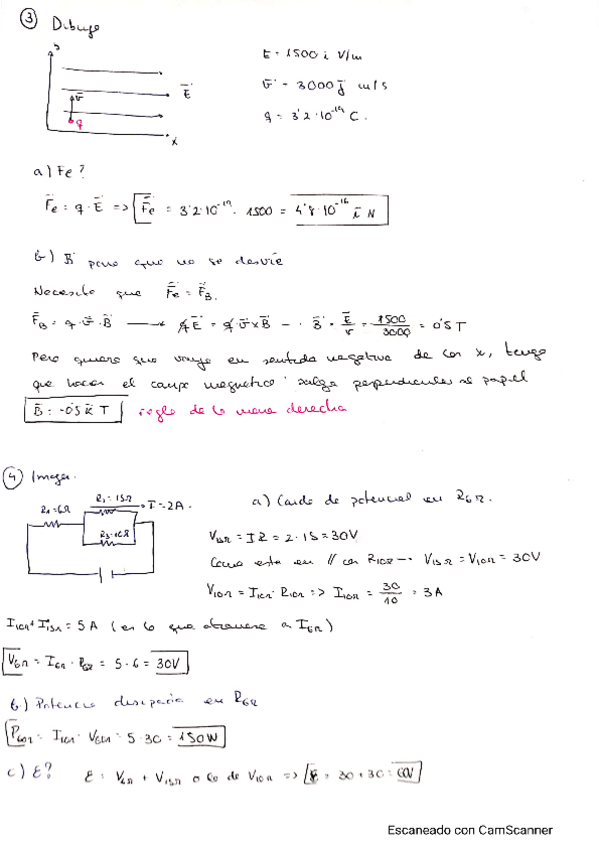 ③ Dibujo
y
E = 1500 i V/m
v = 3000 j m/s
E
v
q
x
q = 3'2·10⁻¹⁹ C.
a) Fe?
Fe = q·E => Fe = 3'2·10⁻¹⁹. 1500 = 4'8·10⁻¹⁶ i N
b) B para que no se desvíe
Necesito que Fe = F_B.
F_B = q·v·B → qE = q·v×B → B = E/v = 1500/3000 = 0'5 T
Pero quiero que vaya en sentido negativo de las x, tengo
que hacer el campo magnético salga perpendicular al papel
B = -0'5 k T regla de la mano derecha
④ Imagen.
R₁=6Ω
R₂=15Ω
I=2A
R₃=10Ω
a) Caída de potencial en R₆Ω.
V₁₅Ω = I R = 2·15 = 30V
Como está en // con R₁₀Ω → V₁₅Ω = V₁₀Ω = 30V
V₁₀Ω = I₁₀Ω·R₁₀Ω => I₁₀Ω = 30/10 = 3A
I₁₀Ω + I₁₅Ω = 5A (es lo que atraviesa a I₆Ω)
V₆Ω = I₆Ω·R₆Ω = 5·6 = 30V
b) Potencia disipada en R₆Ω
P₆Ω = I₆Ω·V₆Ω = 5·30 = 150W
c) ε? ε = V₆Ω + V₁₅Ω o lo de V₁₀Ω => ε = 30+30 = 60V
Escaneado con CamScanner